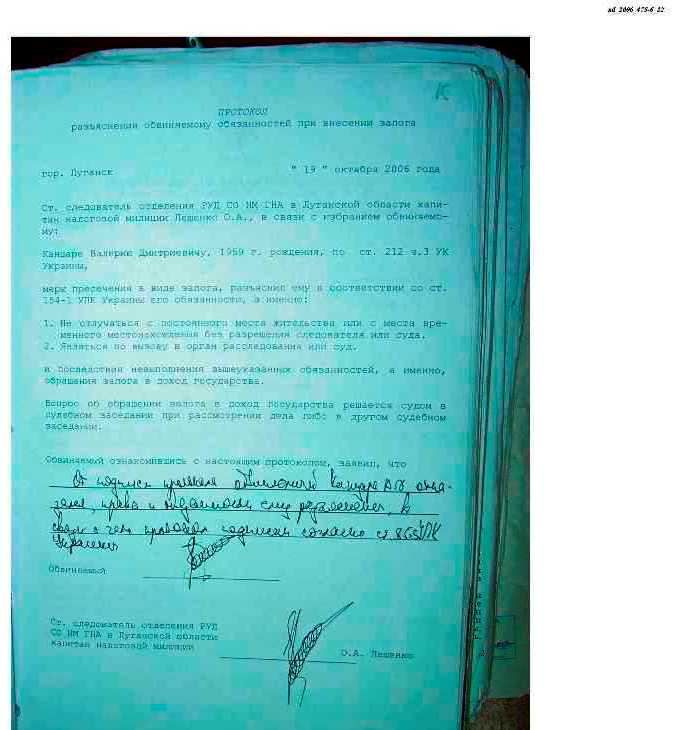 ad_2006_475-6_22
ПРОТОКОЛ
разъяснения обвиняемому обязанностей при внесении залога
гор. Луганск " 19 " октября 2006 года
Ст. следователь отделения РУД СО НМ ГНА в Луганской области капи-
тан налоговой милиции Лешенко О.А., в связи с избранием обвиняемо-
му:
Кандаре Валерию Дмитриевичу, 1959 г. рождения, по ст. 212 ч.3 УК
Украины,
меры пресечения в виде залога, разъяснил ему в соответствии со ст.
154-1 УПК Украины его обязанности, а именно:
1. Не отлучаться с постоянного места жительства или с места вре-
менного местонахождения без разрешения следователя или суда.
2. Являться по вызову в орган расследования или суд.
и последствия невыполнения вышеуказанных обязанностей, а именно,
обращения залога в доход государства.
Вопрос об обращении залога в доход государства решается судом в
судебном заседании при рассмотрении дела либо в другом судебном
заседании.
Обвиняемый ознакомившись с настоящим протоколом, заявил, что
От подписи протокола обвиняемый отка-
зался, права и обязанности ему разъяснены, в
связи с чем протокол подписан согласно ст 85 УПК
Украины
Обвиняемый
Ст. следователь отделения РУД
СО НМ ГНА в Луганской области
капитан налоговой милиции
О.А. Лешенко